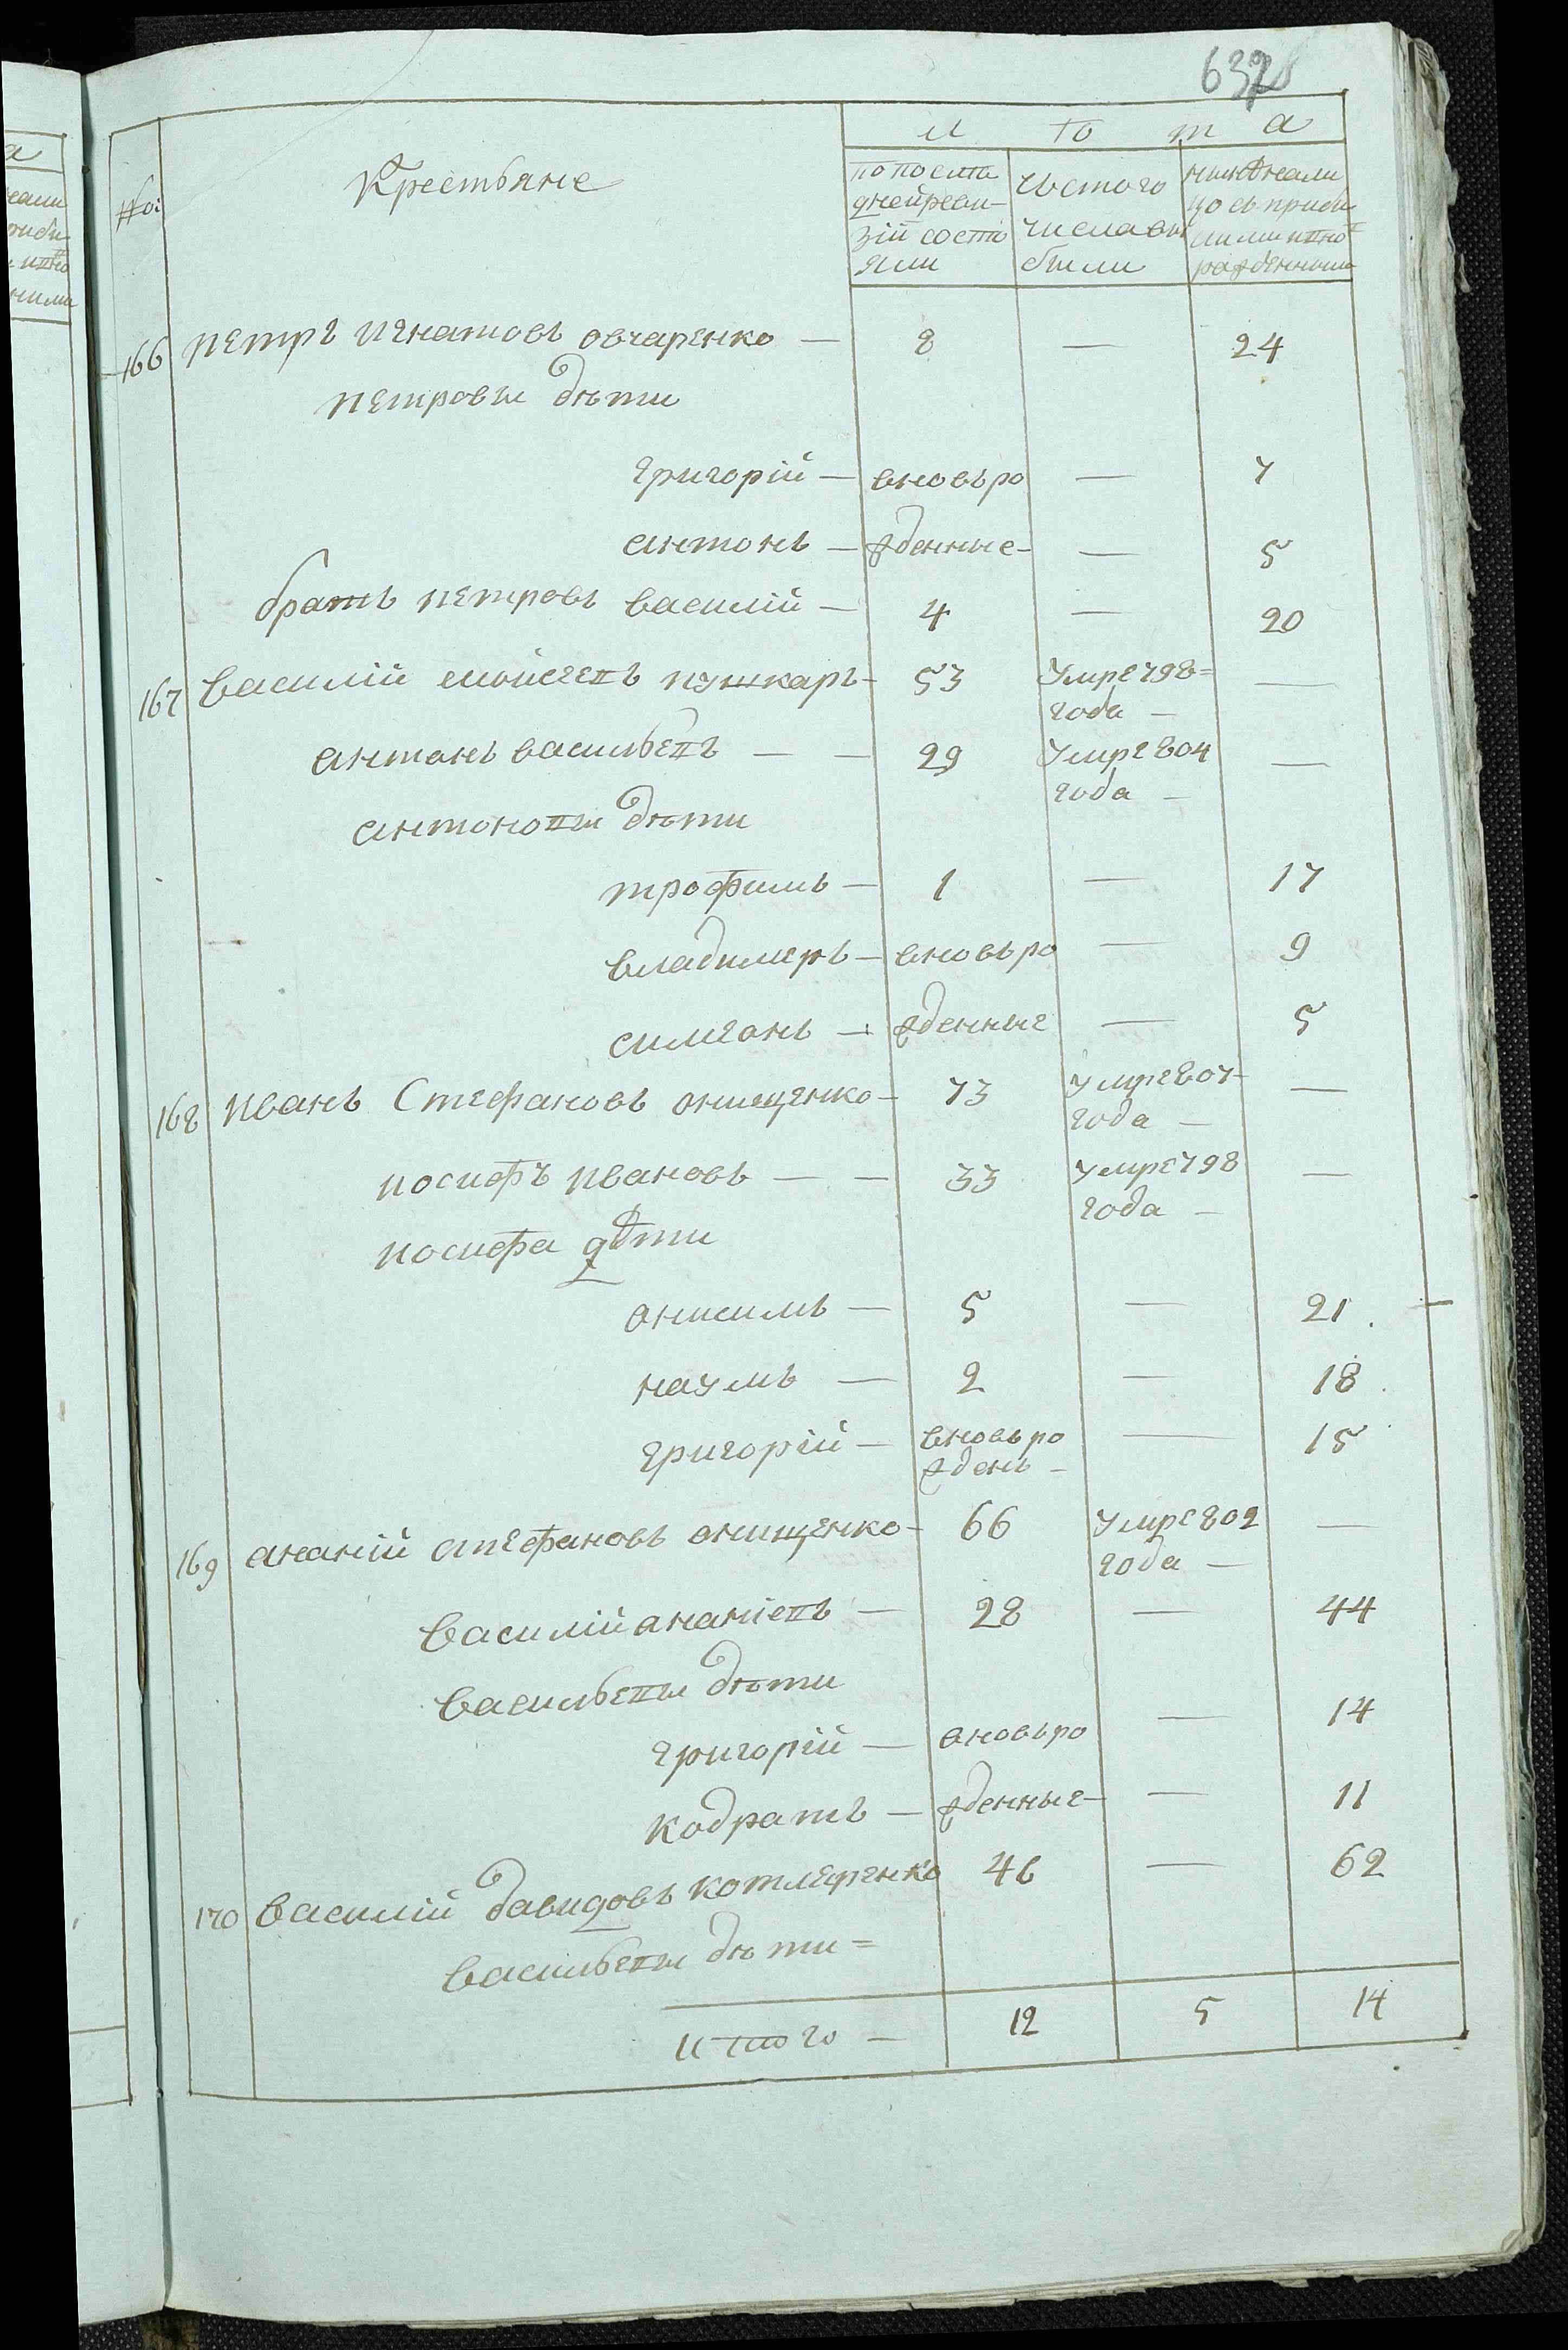 632
№: Крестьяне лѣта
по послѣднейревизiи состояли
изъстого числавыбыли
нынѣнали цо съ прибилими ино рожденными
166 Петръ Игнатовъ овчаренко — 8 — 24
Петровы дѣти
григорiй — вновьро — 7
антонъ — жденные — — 5
братъ петровъ василiй — 4 — 20
167 василiй мойсеевъ пушкаръ — 53 умре798= года — —
антонъ васильевъ — — 29 умре804 года — —
антоновы дѣти
трофимъ — 1 — 17
владимеръ — вновьро — 9
симеонъ — жденные — 5
168 Иванъ Стефановъ онищенко — 73 умре807 года — —
иосифъ Ивановъ — — 33 умре798 года — —
иосифа дѣти
онисимъ — 5 — 21
наумъ — 2 — 18
григорiй — вновьро жденъ — — 15
169 ананiй стефановъ онищенко — 66 умре802 года — —
василiй ананiевъ — 28 — 44
васильевы дѣти
григорiй — вновьро — 14
кодратъ — жденные — — 11
170 василiй давидовъ котляренко 46 — 62
васильевы дѣти =
итого — 12 5 14